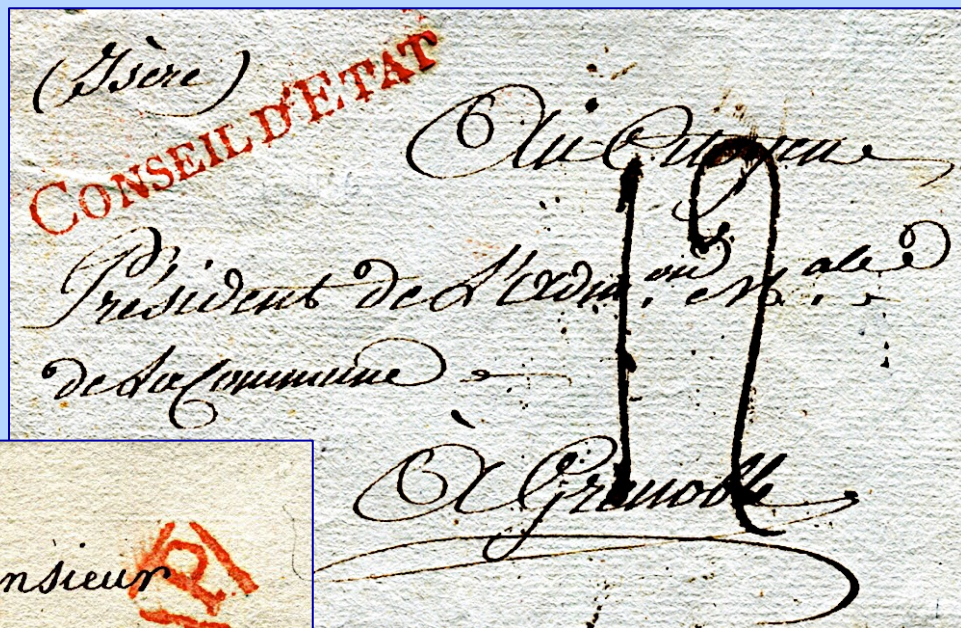 (Isère)
CONSEIL D'ETAT
Au Citoyen
Président de L'Adm.on M.ale
de la Commune
A Grenoble
nsieur
P